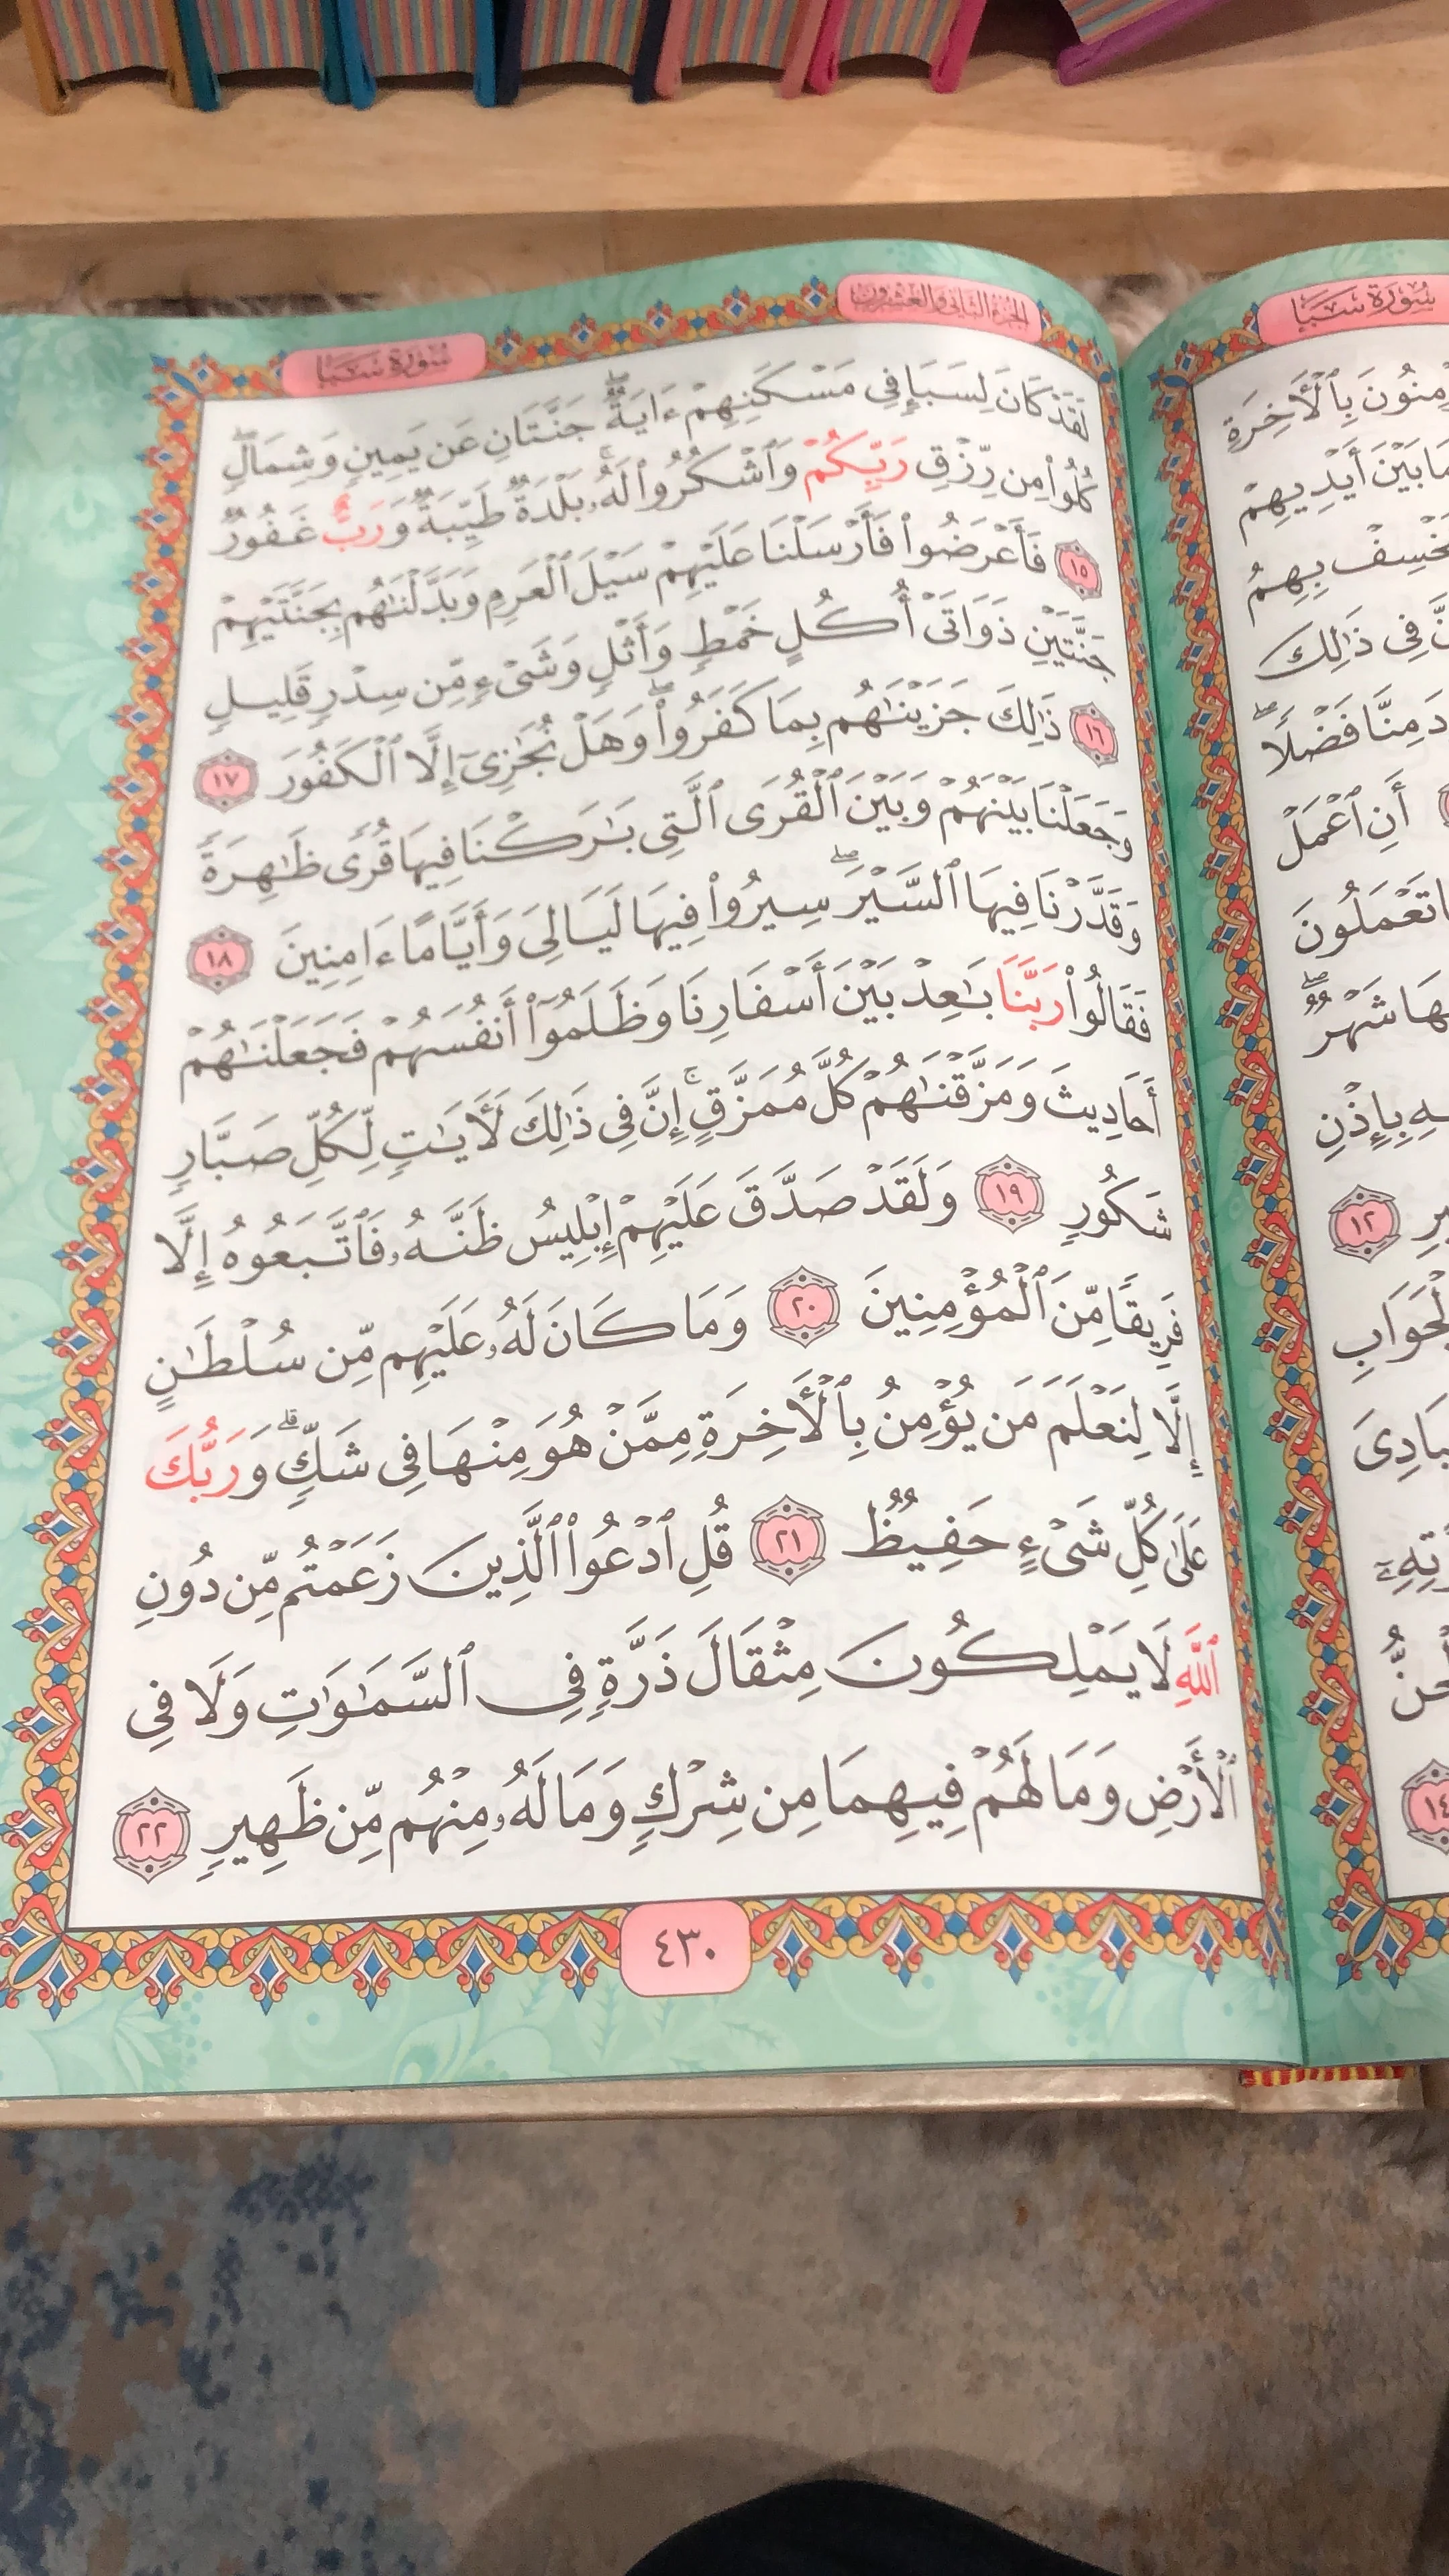 سُورَةُ سَبَإٍ
الجُزْءُ الثَّانِي وَالعِشْرُونَ
سُورَةُ سَبَإٍ
لَقَدْ كَانَ لِسَبَإٍ فِي مَسْكَنِهِمْ ءَايَةٌ ۖ جَنَّتَانِ عَن يَمِينٍ وَشِمَالٍ ۖ
كُلُوا۟ مِن رِّزْقِ رَبِّكُمْ وَٱشْكُرُوا۟ لَهُۥ ۚ بَلْدَةٌ طَيِّبَةٌ وَرَبٌّ غَفُورٌ
١٥ فَأَعْرَضُوا۟ فَأَرْسَلْنَا عَلَيْهِمْ سَيْلَ ٱلْعَرِمِ وَبَدَّلْنَٰهُم بِجَنَّتَيْهِمْ
جَنَّتَيْنِ ذَوَاتَىْ أُكُلٍ خَمْطٍ وَأَثْلٍ وَشَىْءٍ مِّن سِدْرٍ قَلِيلٍ
١٦ ذَٰلِكَ جَزَيْنَٰهُم بِمَا كَفَرُوا۟ ۖ وَهَلْ نُجَٰزِىٓ إِلَّا ٱلْكَفُورَ ١٧
وَجَعَلْنَا بَيْنَهُمْ وَبَيْنَ ٱلْقُرَى ٱلَّتِى بَٰرَكْنَا فِيهَا قُرًى ظَٰهِرَةً
وَقَدَّرْنَا فِيهَا ٱلسَّيْرَ ۖ سِيرُوا۟ فِيهَا لَيَالِىَ وَأَيَّامًا ءَامِنِينَ ١٨
فَقَالُوا۟ رَبَّنَا بَٰعِدْ بَيْنَ أَسْفَارِنَا وَظَلَمُوٓا۟ أَنفُسَهُمْ فَجَعَلْنَٰهُمْ
أَحَادِيثَ وَمَزَّقْنَٰهُمْ كُلَّ مُمَزَّقٍ ۚ إِنَّ فِى ذَٰلِكَ لَـَٔايَٰتٍ لِّكُلِّ صَبَّارٍ
شَكُورٍ ١٩ وَلَقَدْ صَدَّقَ عَلَيْهِمْ إِبْلِيسُ ظَنَّهُۥ فَٱتَّبَعُوهُ إِلَّا
فَرِيقًا مِّنَ ٱلْمُؤْمِنِينَ ٢٠ وَمَا كَانَ لَهُۥ عَلَيْهِم مِّن سُلْطَٰنٍ
إِلَّا لِنَعْلَمَ مَن يُؤْمِنُ بِٱلْـَٔاخِرَةِ مِمَّنْ هُوَ مِنْهَا فِى شَكٍّ ۗ وَرَبُّكَ
عَلَىٰ كُلِّ شَىْءٍ حَفِيظٌ ٢١ قُلِ ٱدْعُوا۟ ٱلَّذِينَ زَعَمْتُم مِّن دُونِ
ٱللَّهِ لَا يَمْلِكُونَ مِثْقَالَ ذَرَّةٍ فِى ٱلسَّمَٰوَٰتِ وَلَا فِى
ٱلْأَرْضِ وَمَا لَهُمْ فِيهِمَا مِن شِرْكٍ وَمَا لَهُۥ مِنْهُم مِّن ظَهِيرٍ ٢٢
٤٣٠
بِٱلْـَٔاخِرَةِ
بَيْنَ أَيْدِيهِمْ
بِهِمُ
فِى ذَٰلِكَ
مِنَّا فَضْلًا ۖ
أَنِ ٱعْمَلْ
تَعْمَلُونَ
شَهْرٌ ۖ
بِإِذْنِ
١٢
١٤